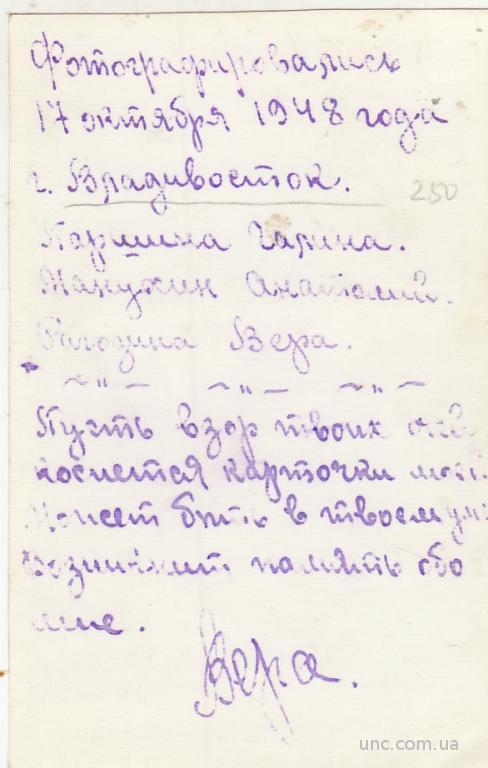 Фотографировались
17 октября 1948 года
г. Владивосток.
250
Паршина Галина.
Манухин Анатолий.
Рагозина Вера.
~ " — ~ " — ~ " ~
Пусть взор твоих очей
коснется карточки моей.
Может быть в твоем уме
возникнит память обо
мне.
Вера.
unc.com.ua